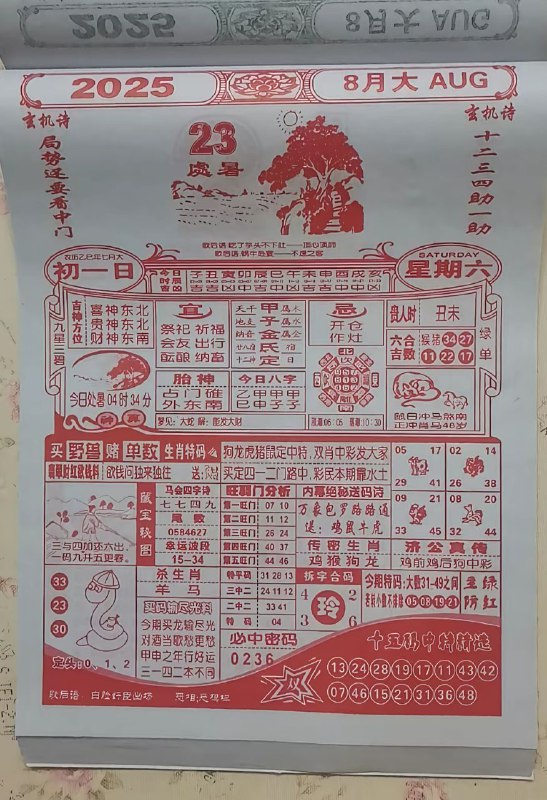 2025
8月大 AUG
玄机诗
局势还要看中门
23
处暑
玄机诗
十二三四助一助
农历乙巳年七月大
初一日
今日时辰吉凶
子丑寅卯辰巳午未申酉戌亥
吉吉凶中凶中中凶中中凶凶
SATURDAY
星期六
吉神方位
喜神东北
贵神东北
财神东南
宜
祭祀 祈福
会友 出行
酝酿 纳畜
天干 甲 属木
地支 子 属水
纳音 金 属金
廿八宿 氐 宿
十二神 定 日
忌
开仓
作灶
贵人时 丑未
六合吉数
猴猪 34 27
11 22 17
绿单
今日处暑 04时34分
胎神
占门碓
外东南
今日八字
乙甲甲甲
巳申子子
煞日冲马煞南
正冲肖马48岁
买野兽赌单数 生肖特码
狗龙虎猪鼠定中特,双肖中彩发大家
欲钱问独来独往
买定四一二门路中,彩民本期靠水土
05 17
29 41
02 14
26 38
09 21
33 45
08 20
32 44
三与四加还六出
一码九升五迎春
藏宝秘图
马会四字诗
七七四九
尾数
0584627
幸运波段
15-34
旺弱门分析
第一旺门 07 10
第二旺门 01 02
第三旺门 26 24
第四旺门 40 37
第五旺门 44 46
内幕绝秘送码诗
万象包罗路路通
送:鸡鼠牛虎
传密生肖
鸡猴狗龙
济公真传
鸡前鸡后狗中彩
33
23
30
定头:0、1、2
杀生肖
羊马
买码输尽光料
今南买龙输尽光
对酒当歌愁更愁
甲申之年行好运
三一四二本不同
特平码 31 28 13
三中二 24 11 12
二中二 33 41
特码 04
必中密码
0236
拆字合码
4 2
玲
3 6
今期特码:大数31-49之间
05 08 19 21
主绿
防红
十五码中特精选
13 24 28 19 17 11 43 42
07 46 15 21 31 36 48
歇后语